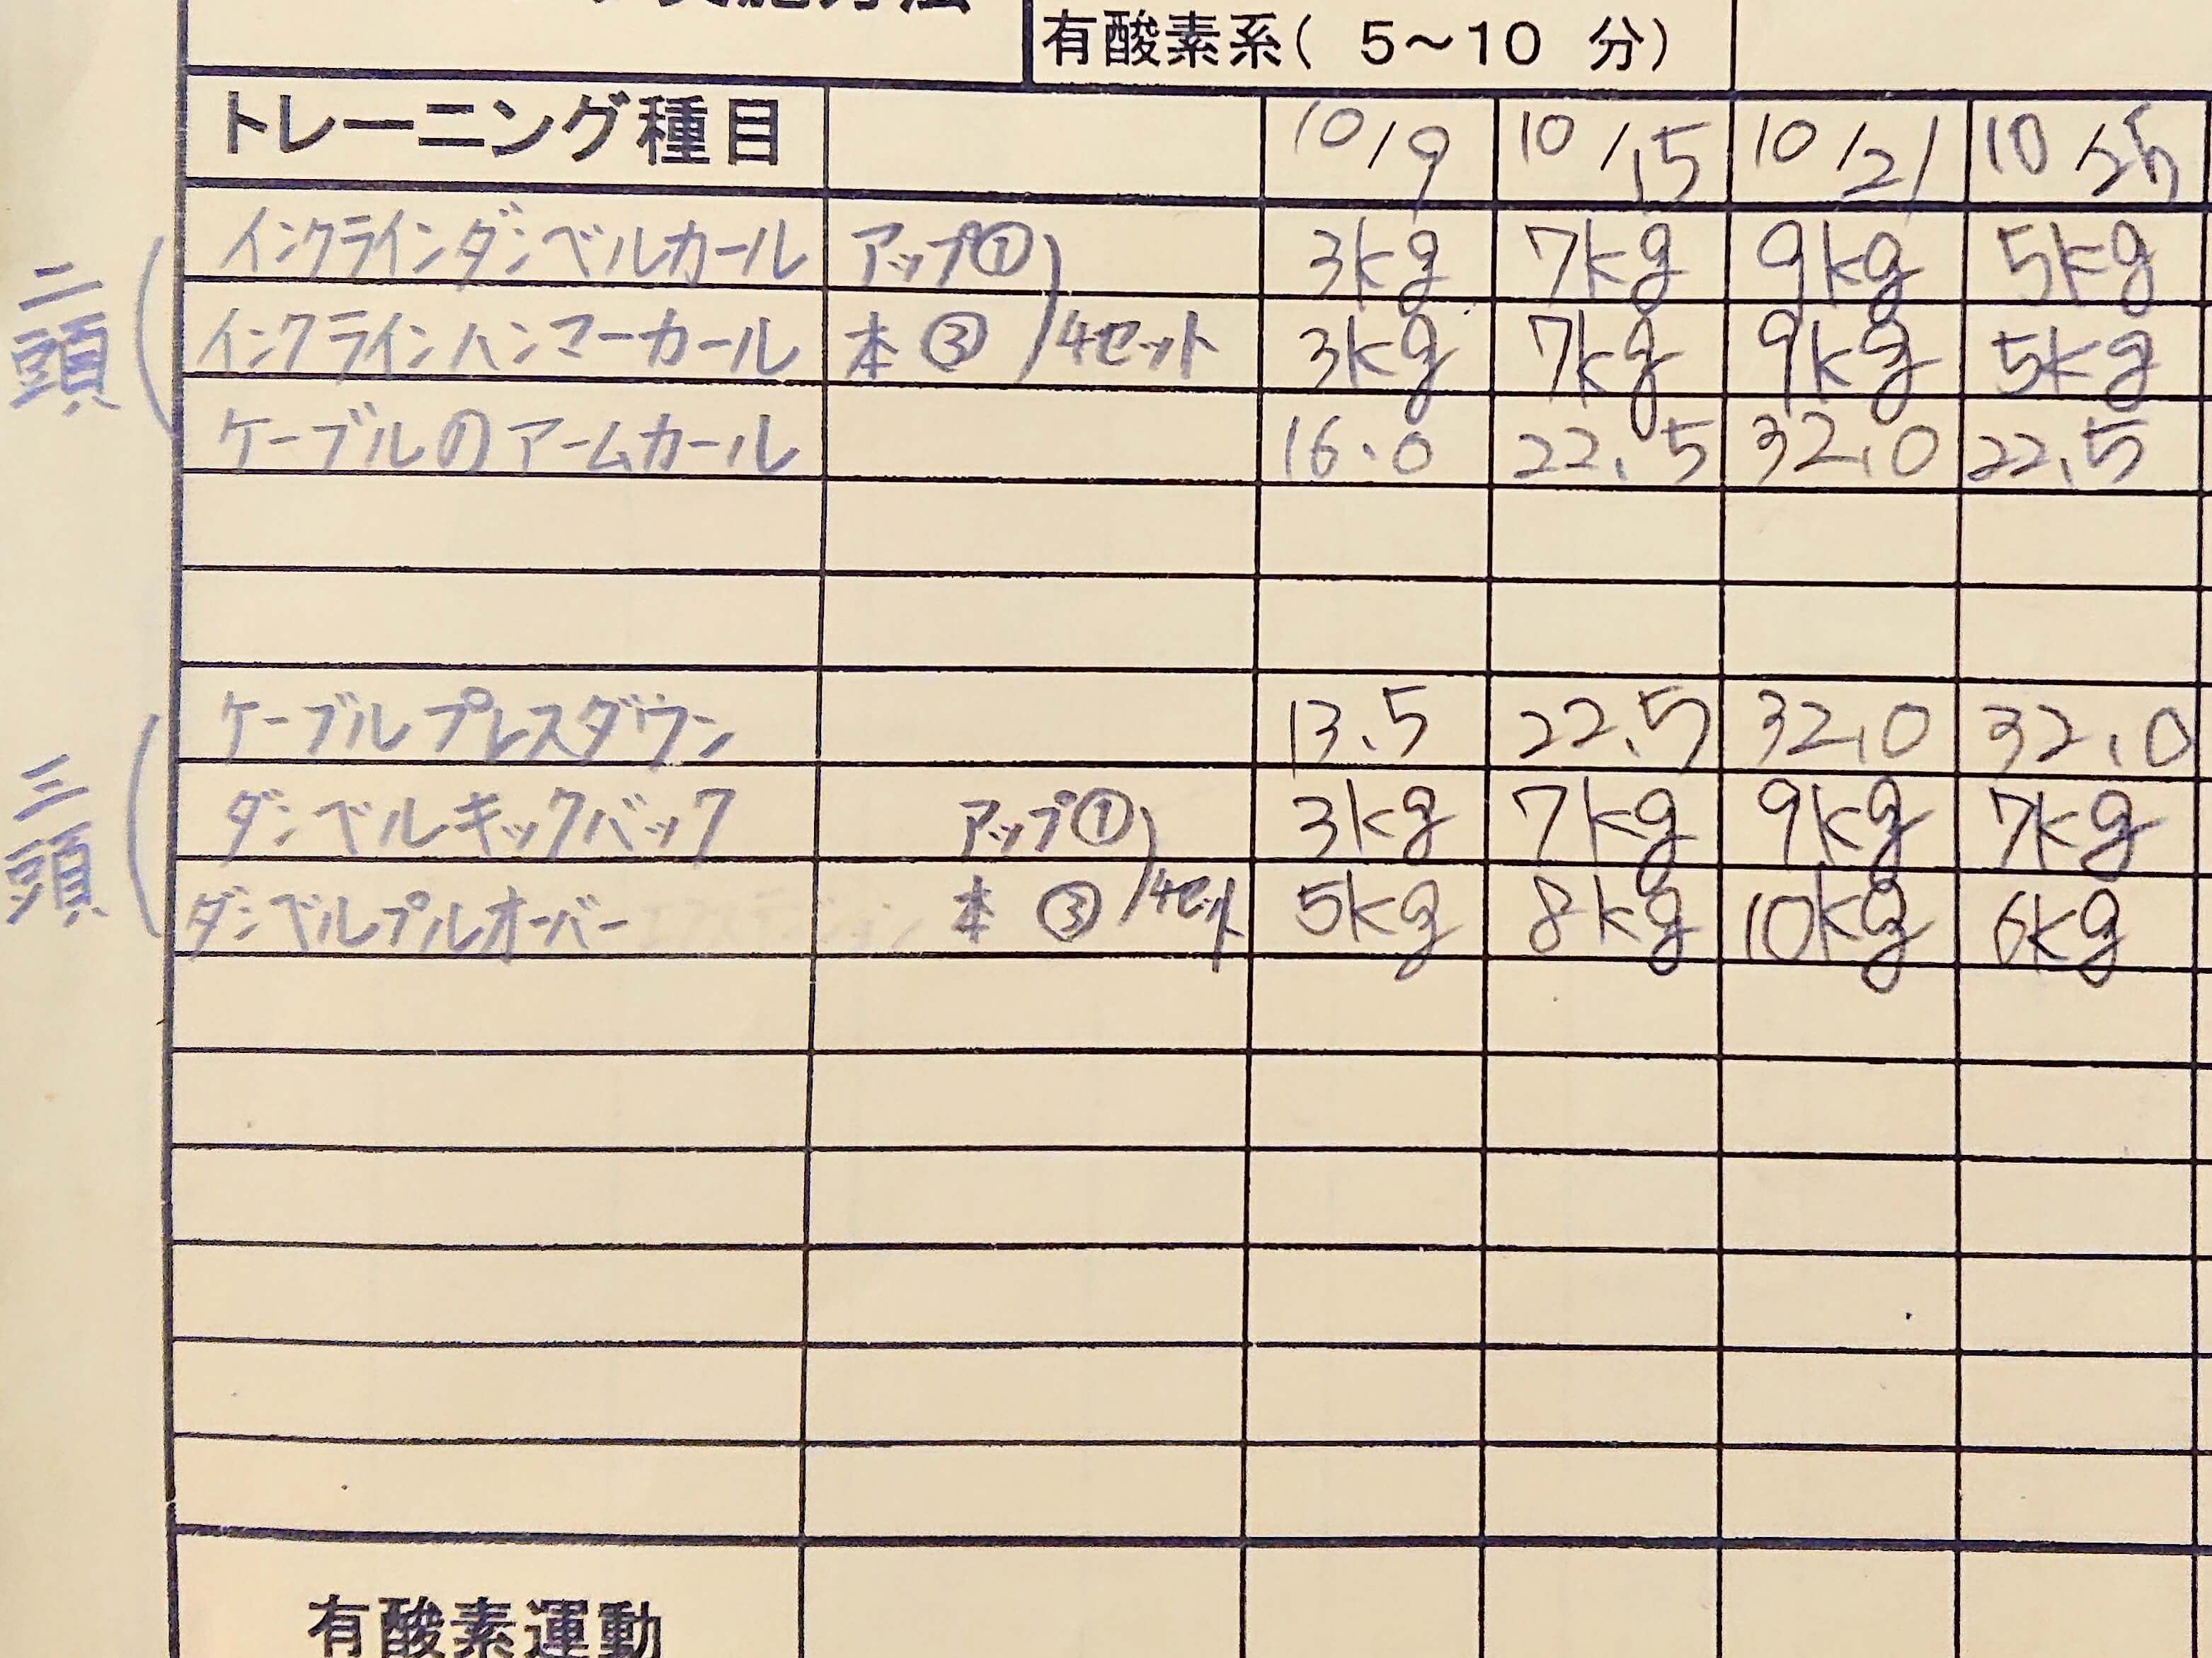 有酸素系( 5～10 分)
トレーニング種目 10/9 10/15 10/21 10/25
二頭
インクラインダンベルカール アップ① 3kg 7kg 9kg 5kg
インクラインハンマーカール 本③ 4セット 3kg 7kg 9kg 5kg
ケーブルのアームカール 16.0 22.5 32.0 22.5
三頭
ケーブルプレスダウン 13.5 22.5 32.0 32.0
ダンベルキックバック アップ① 3kg 7kg 9kg 7kg
ダンベルプルオーバー 本③ 4セット 5kg 8kg 10kg 6kg
有酸素運動